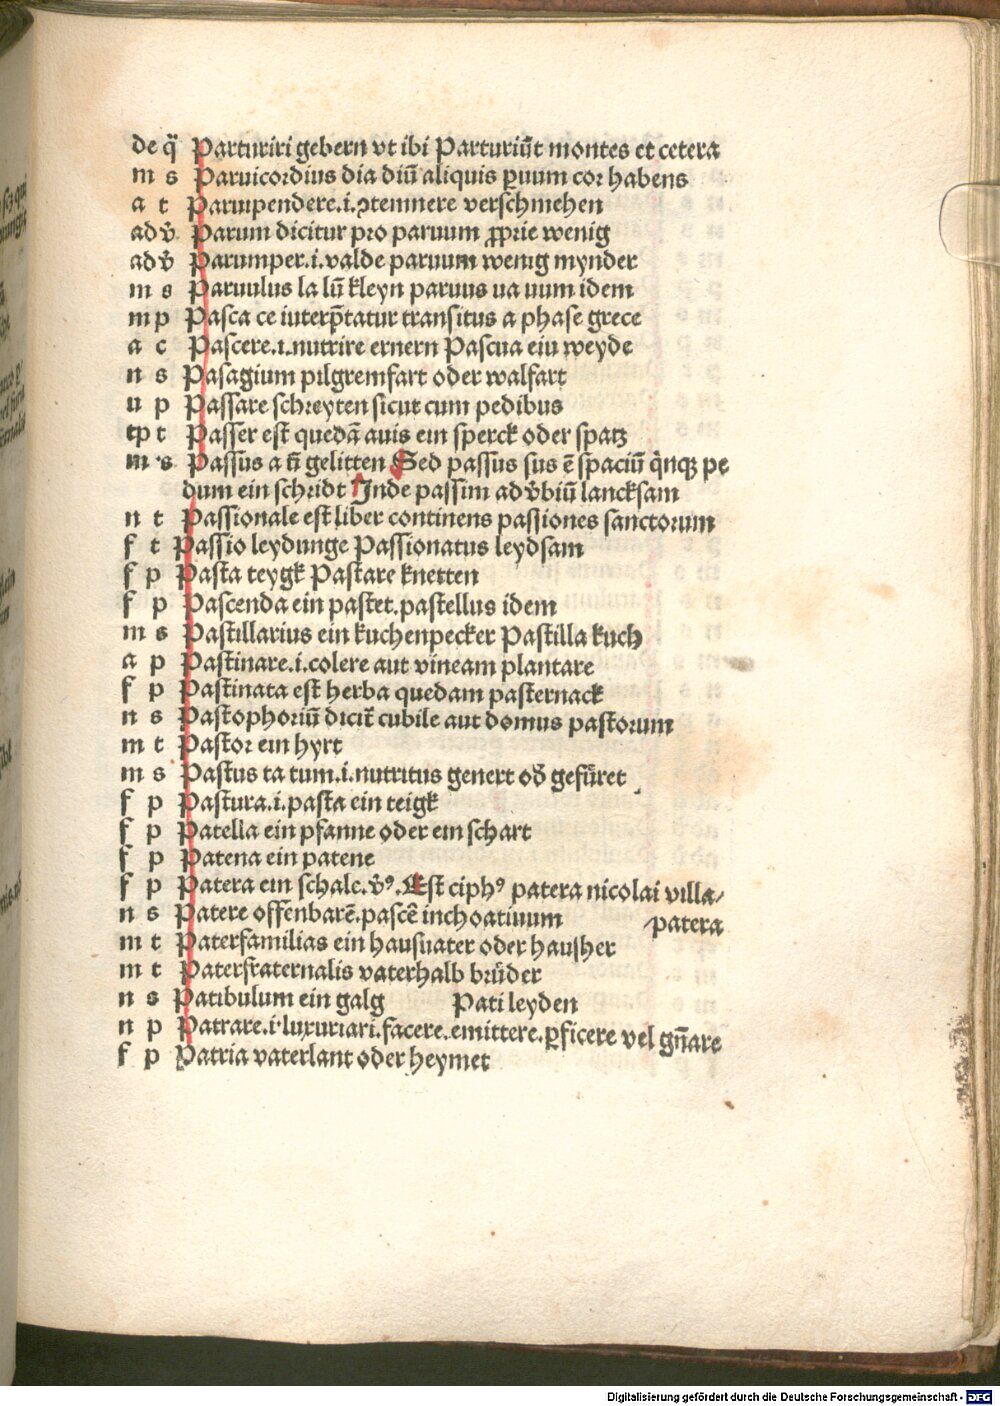 de q̈ Parturiri gebern vt ibi Parturiūt montes et cetera
m s Paruicordius dia diū aliquis ꝑuum cor habens
a t Paruipendere.i.ꝯtemnere verschmehen
adv̄ Parum dicitur pro paruum ꝓprie wenig
adv̄ Parumper.i.valde paruum wenig mynder
m s Paruulus la lū kleyn paruus ua uum idem
m p Pasca ce iuterp̄tatur transitus a phase grece
a c Pascere.i.nutrire ernern Pascua eiu weyde
n s Pasagium pilgremfart oder walfart
u p Passare schreyten sicut cum pedibus
tp t Passer est quedā auis ein sperck oder spatz
m s Passus a ū gelitten Sed passus sus ē spaciū q̇nqꝫ pe
dum ein schridt Inde passim adv̄biū lancksam
n t Passionale est liber continens passiones sanctorum
f t Passio leydunge Passionatus leydsam
f p Pasta teygk Pastare knetten
f p Pascenda ein pastet.pastellus idem
m s Pastillarius ein kuchenpecker Pastilla kuch
a p Pastinare.i.colere aut vineam plantare
f p Pastinata est herba quedam pasternack
n s Pastophoriū dicit̄ cubile aut domus pastorum
m t Pastor ein hyrt
m s Pastus ta tum.i.nutritus genert od̄ gefüret
f p Pastura.i.pasta ein teigk
f p Patella ein pfanne oder ein schart
f p Patena ein patene
f p Patera ein schale.v̄ꝰ.Est ciphꝰ patera nicolai villa⸗
n s Patere offenbarē.pascē inchoatiuum patera
m t Paterfamilias ein hausuater oder hausher
m t Paterfraternalis vaterhalb brüder
n s Patibulum ein galg Pati leyden
n p Patrare.i.luxuriari.facere.emittere.ꝑficere vel gn̄are
f p Patria vaterlant oder heymet
Digitalisierung gefördert durch die Deutsche Forschungsgemeinschaft - DFG